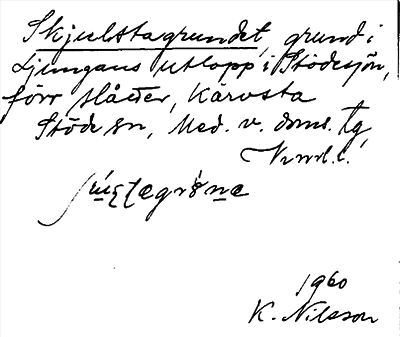 Skjulstagrundet, grund i
Ljungans utlopp i Stödesjön,
förr slåtter, Kärvsta
Stöde sn, Med. v. doms. tg,
1960
K. Nilsson